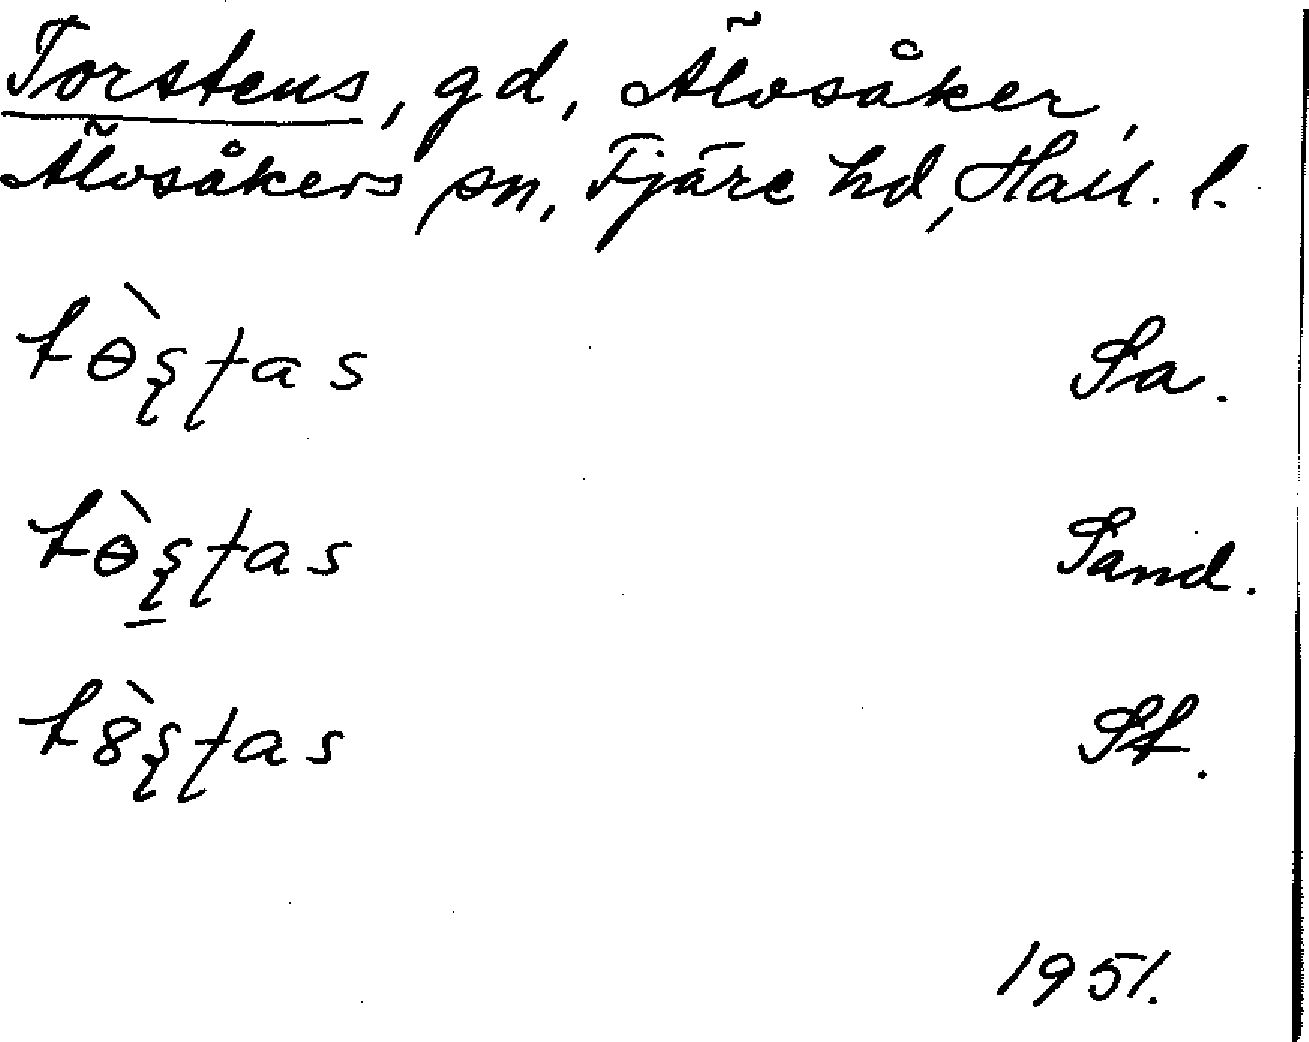 Torstens, gd, Älvsåker,
Älvsåkers sn, Fjäre hd, Hall. l.
tɵ̀ʂʈas Sa.
tɵ̀ʂʈas Sand.
t8̀ʂʈas St.
1951.